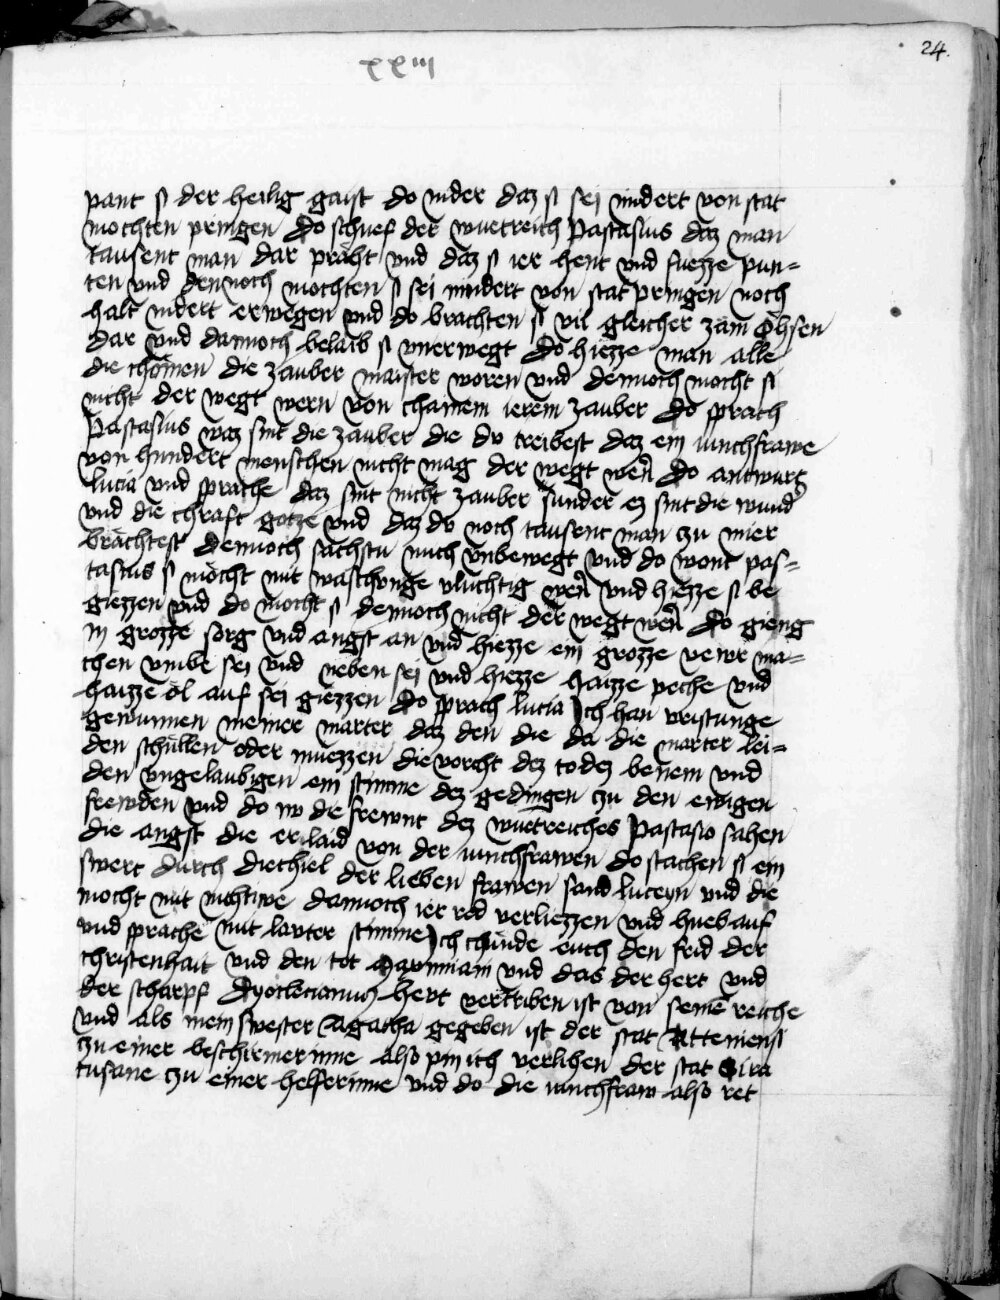 24.
xxiii
pant si der heilig gaist do nider daz si sei nindert von stat
mochten pringen do schuef der wuetreich Pastasius daz man
tausent man dar prächt und daz si ier hent und fuezze pun-
ten und dennoch mochten si sei nindert von stat pringen noch
halt nidert erwegen und do brachten si vil gleicher zam öhsen
dar und dannoch belaib si unerwegt do hiezze man alle
die chomen die zauber maister woren und dennoch mocht si
nicht der wegt wern von chainem ierem zauber do sprach
Pastasius waz sint die zauber die du treibest daz ein iunchfrawe
von hundert menschen nicht mag der wegt wern do antwurt
lucia und sprache daz sint nicht zauber sunder ez sint die wund
und die chraft gotze und daz du noch tausent man zu mier
brächtest dennoch sächstu mich unbewegt und do wont pas-
tasius si möcht mit waschunge vluchtig wern und hiezze si be
giezzen und do mocht si dennoch nicht der wegt wern do gieng
in grozze sorg und angst an und hiezze ein grozze vewr ma-
chen umbe sei und neben sei und hiezze haizze peche und
haizze öl auf sei giezzen do sprach lucia Ich han vristunge
gewunnen meiner marter daz den die da die marter lei-
den schüllen oder muezzen die vorcht dez todez benem und
den ungelaubigen ein stimme dez gedingen zu den ewigen
frewden und do nv die frewnt dez wuetreiches Pastasio sahen
die angst die er laid von der iunchfrawen do stachen si ein
swert durch die chel der lieben frawen sand luceyn und die
mocht mit nichtiwe dannoch ier red verliezzen und hueb auf
und sprache mit lauter stimme Ich chünde euch den frid der
christenhait und den tot Maximiani und das der hert und
der scharpf dyoclecianus hewt vertriben ist von seinem reiche
und als mein swester Agatha gegeben ist der stat Atteniensi
zu einer beschiermerinne also pin ich verlihen der stat Sira
tusane zu einer helferinne und do die iunchfraw also ret